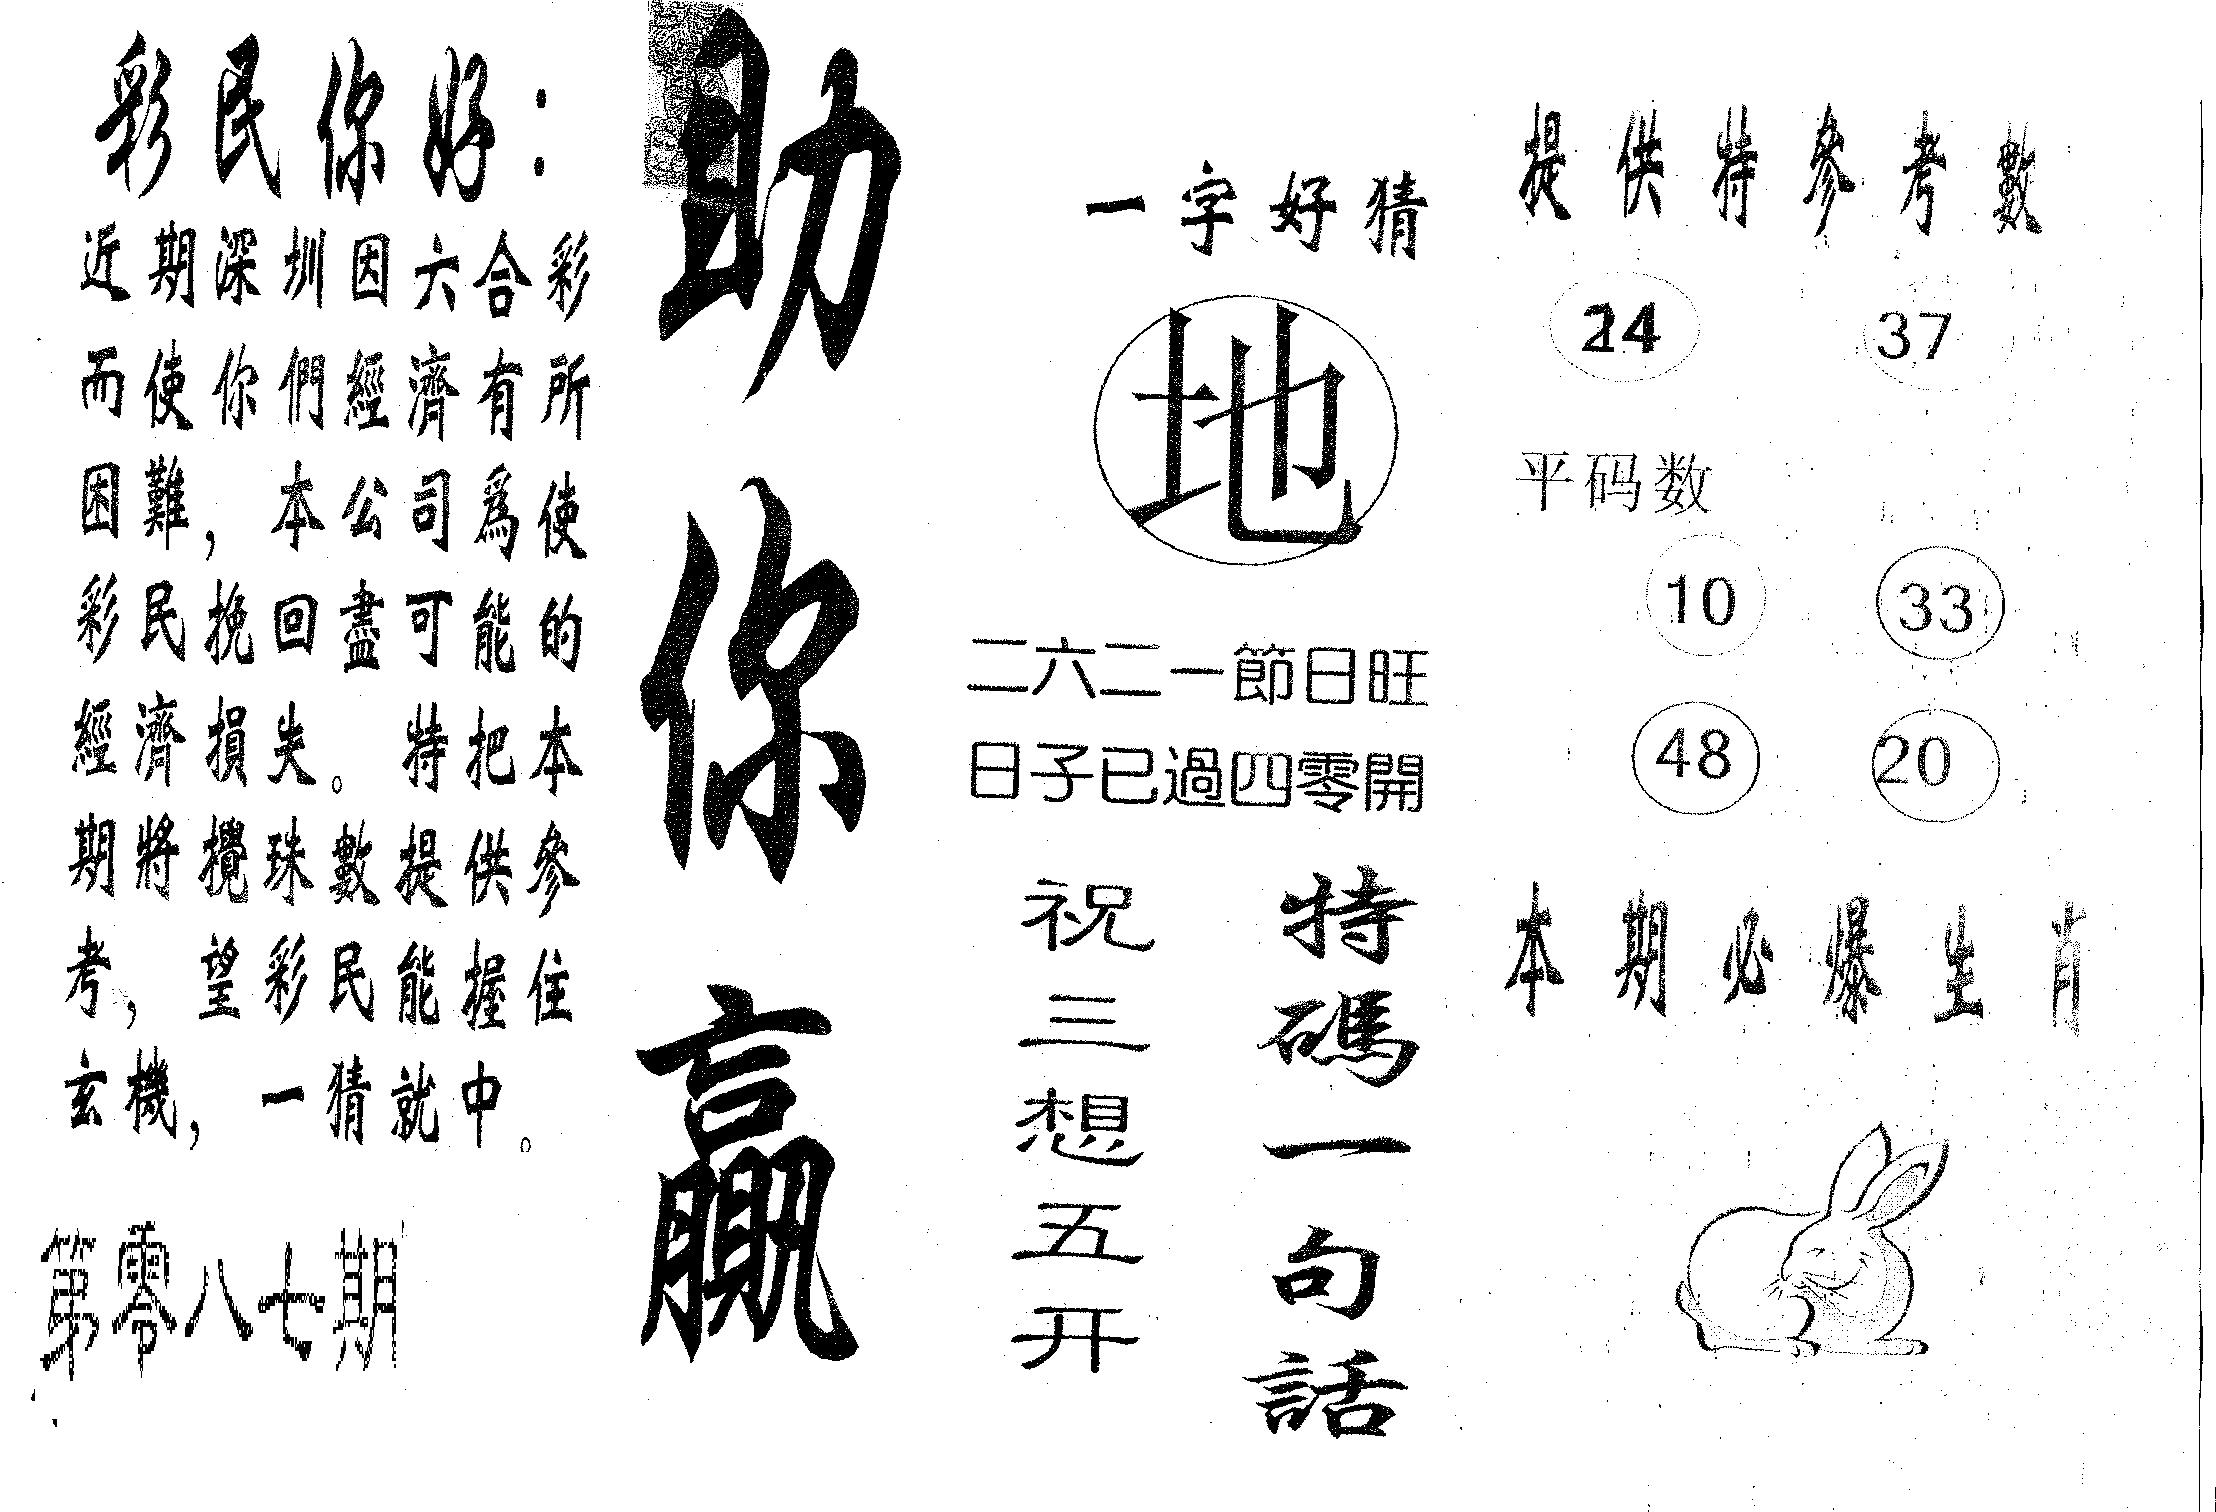 彩民你好：
近期深圳因六合彩
而使你們經濟有所
困難，本公司爲使
彩民挽回盡可能的
經濟損失。特把本
期將攪珠數提供參
考，望彩民能握住
玄機，一猜就中。
第零八七期
助你贏
一字好猜
地
二六二一節日旺
日子已過四零開
特碼一句話
祝三想五开
提供特參考數
24 37
平码数
10 33
48 20
本期必爆生肖